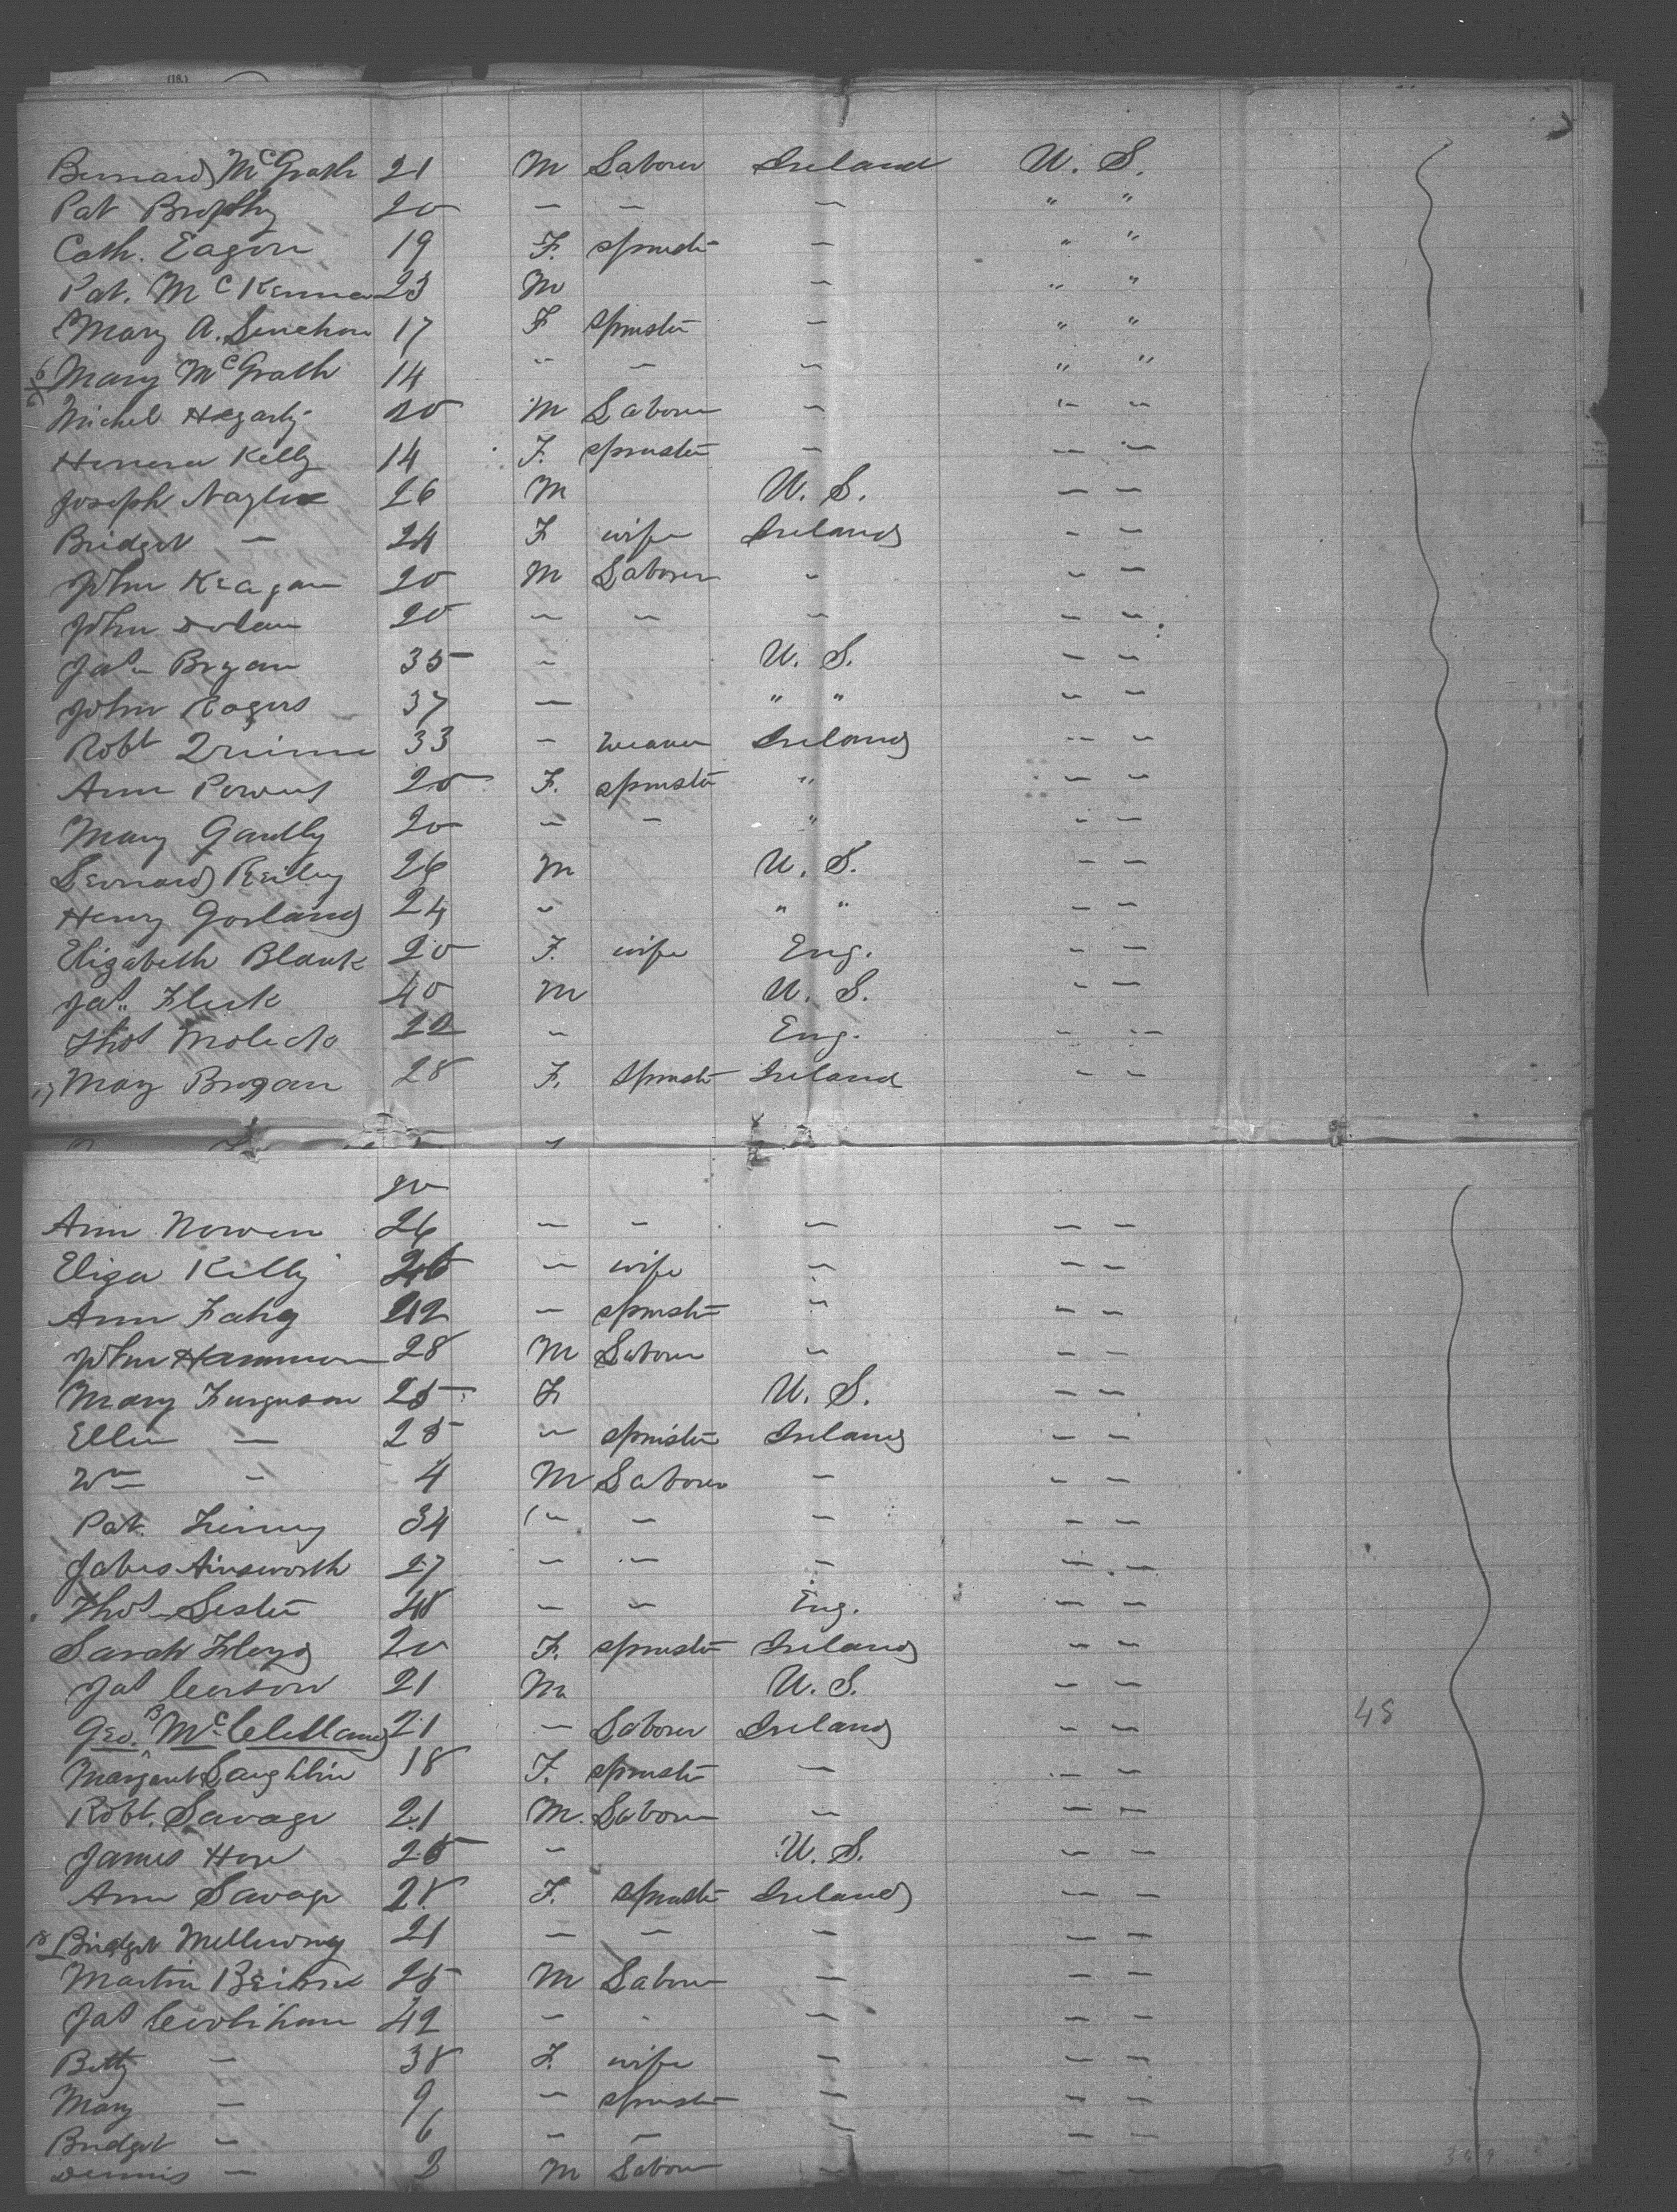 (18.)
Bernard McGrath 21 M Laborer Ireland U. S.
Pat Brophy 20 — — — " "
Cath. Eagan 19 F. spinster — " "
Pat. McKenna 23 M — " "
Mary A. Lenehan 17 F spinster — " "
Mary McGrath 14 " — — " "
Michel Hegarty 20 M Laborer — " "
Honora Kelly 14 F. spinster — — —
Joseph Nagle 26 M U. S. — —
Bridget — 24 F wife Ireland — —
John Keagan 20 M Laborer " — —
John Dolan 20 — — — — —
Jas. Bryan 35 — U. S. — —
John Rogers 37 — " " — —
Robt Quinn 33 — weaver Ireland — —
Ann Powers 20 F. spinster " — —
Mary Gantly 20 — — " — —
Leonard Reiley 26 M U. S. — —
Henry Gorland 24 " " " — —
Elizabeth Blank 20 F. wife Eng. — —
Jas. Fleck 40 M U. S. — —
Thos 22 — Eng. — —
17 May Brogan 28 F. Spinster Ireland — —
20
Ann Nowen 26 — — — — —
Eliza Kelly 26 — wife — — —
Ann Fahy 22 — spinster " — —
John Hammon 28 M Laborer " — —
Mary Ferguson 25 F U. S. — —
Ellen — 25 " spinster Ireland — —
Wm — 4 M Laborer — — —
Pat. Finney 34 " — — — —
Jabes Ainsworth 27 — — — — —
Thos Lester 48 — — Eng. — —
Sarah Floyd 20 F. spinster Ireland — —
Jas Curson 21 M U. S. — —
Geo. B McClelland 21 — Laborer Ireland — — 48
Margaret Laughlin 18 F. spinster — — —
Robt. Savage 21 M. Laborer — — —
James How 25 — U. S. — —
Ann Savage 28 F. Spinster Ireland — —
18 Bridget 21 — — — — —
Martin Beirne 25 M Laborer — — —
Jas Conlihan 42 — - — — —
Betty — 38 F. wife — — —
Mary — 9 " spinster — — —
Bridget — 6 — — — — —
Dennis — 3 M Laborer — — —